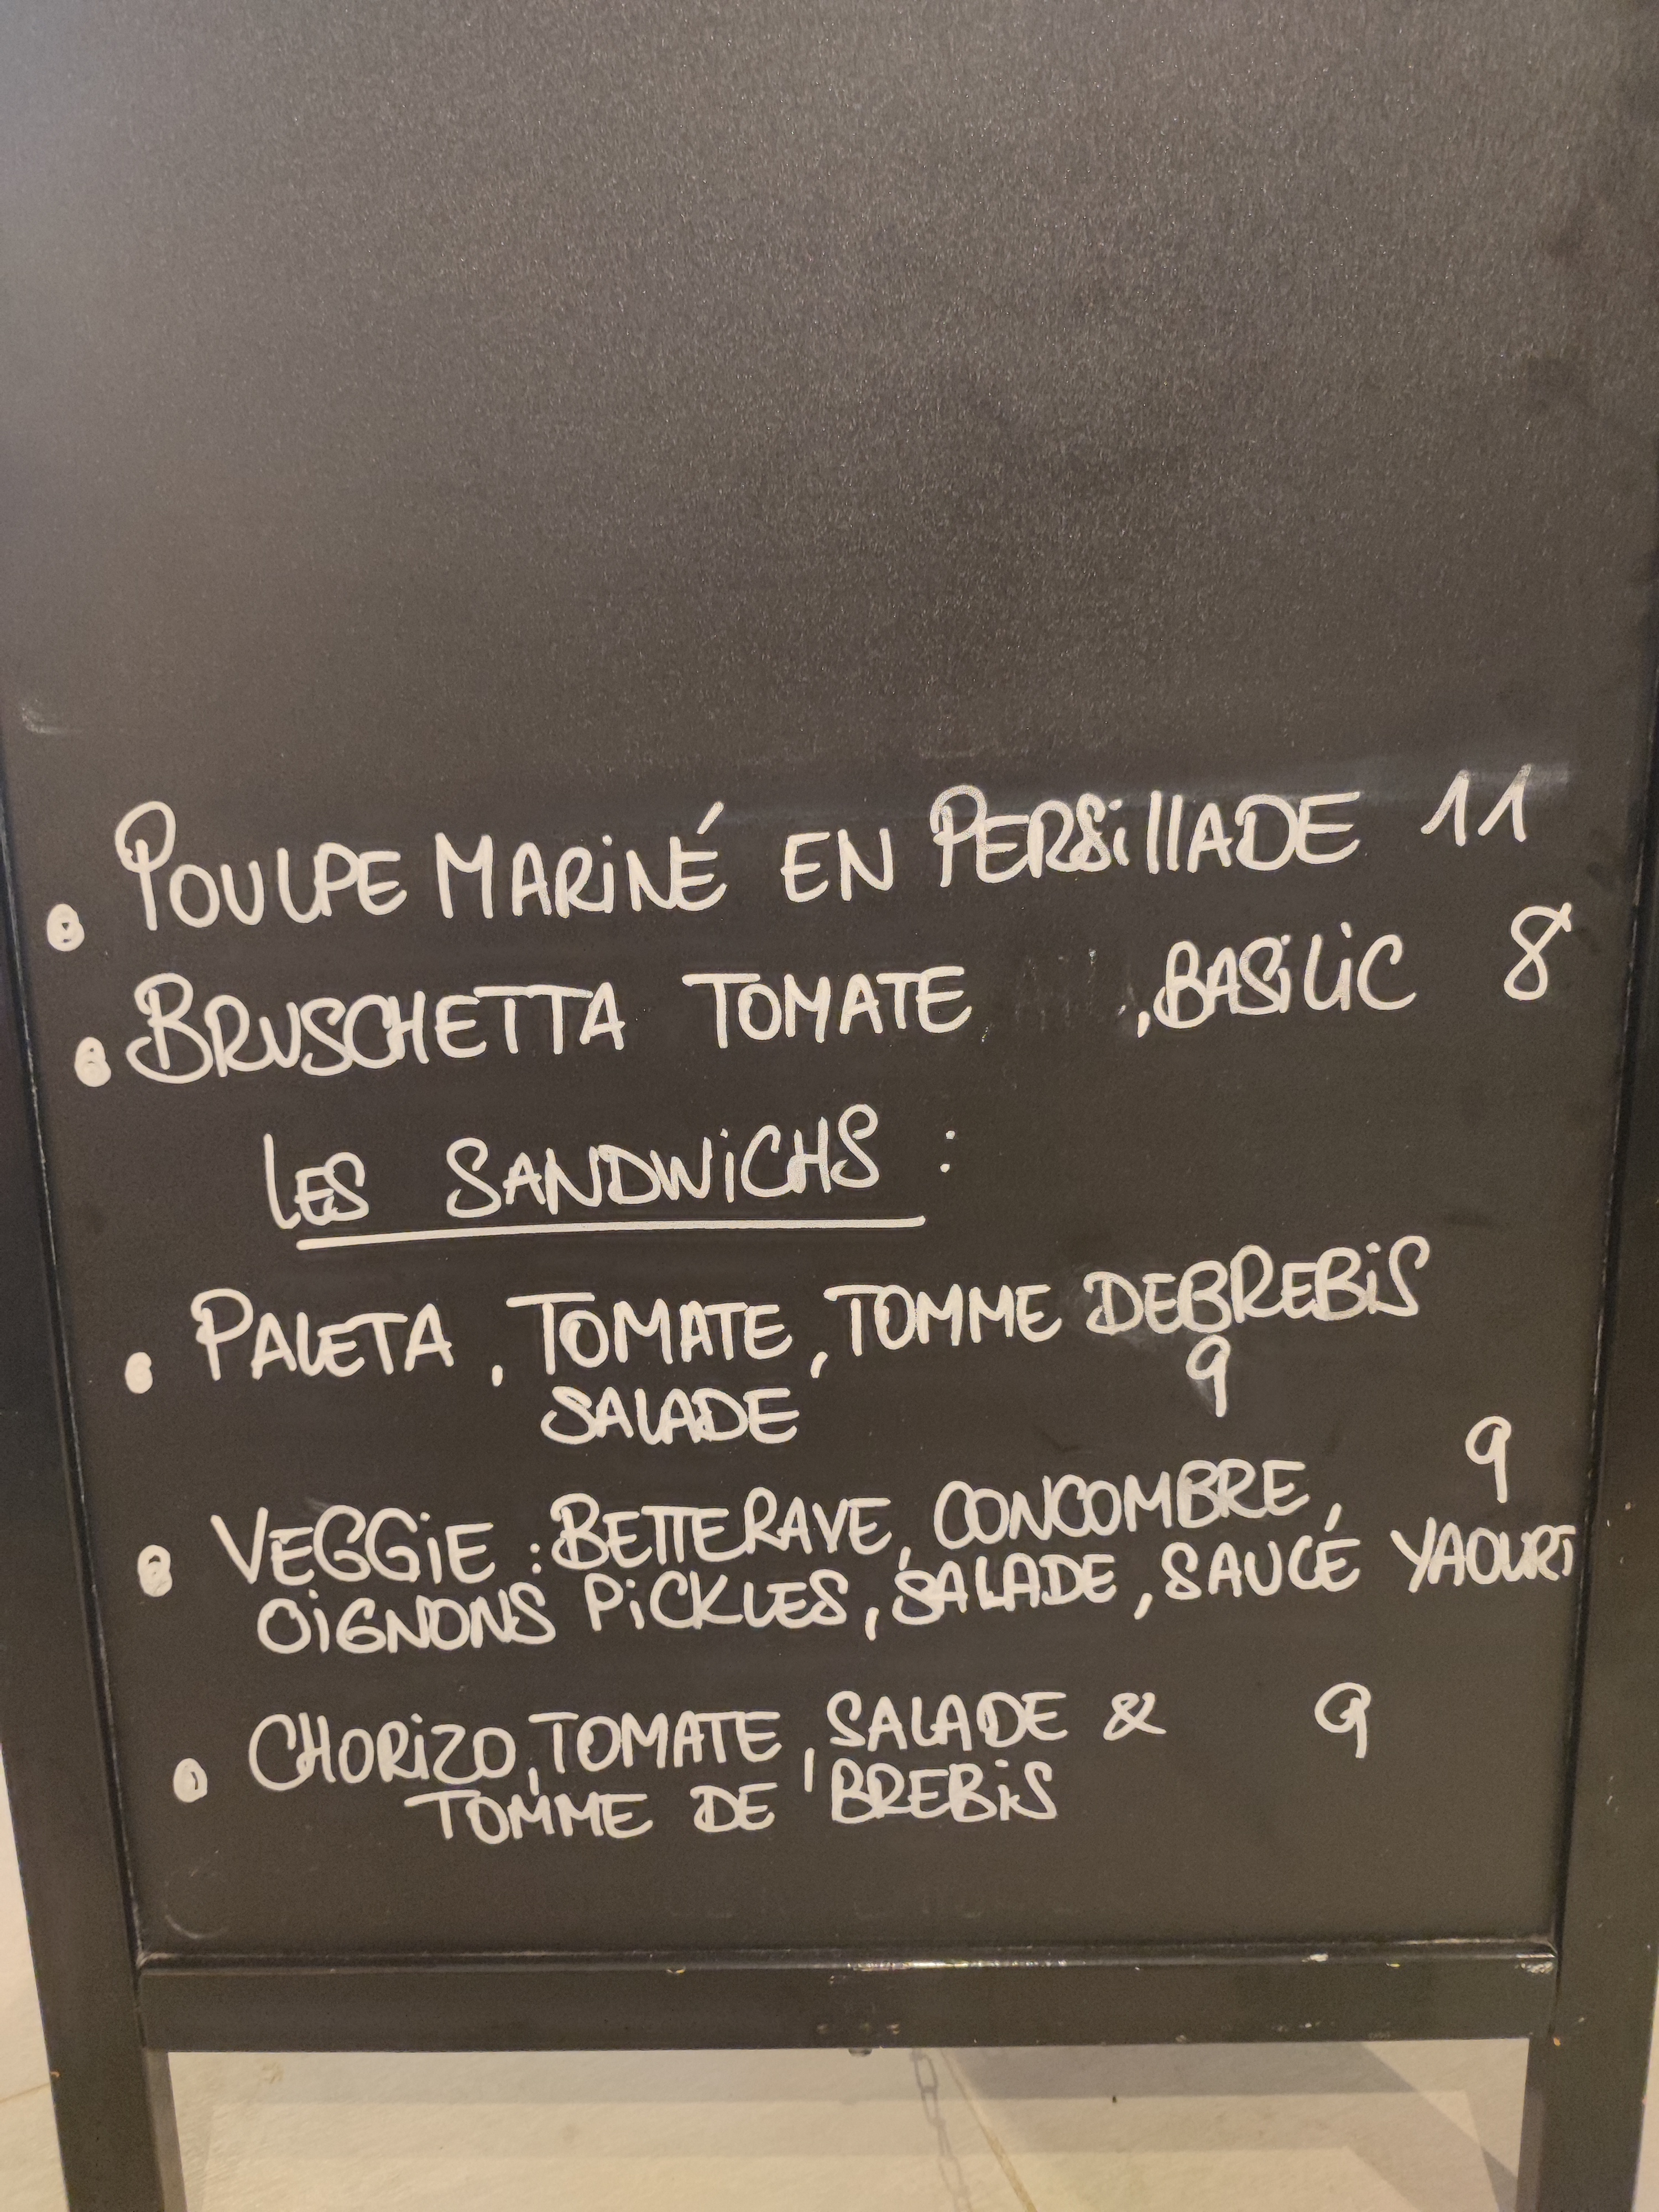 • POULPE MARINÉ EN PERSILLADE 11
• BRUSCHETTA TOMATE , BASILIC 8
LES SANDWICHS :
• PALETA, TOMATE, TOMME DE BREBIS
SALADE 9
• VEGGIE : BETTERAVE, CONCOMBRE, 9
OIGNONS PICKLES, SALADE, SAUCE YAOURT
• CHORIZO, TOMATE, SALADE & 9
TOMME DE BREBIS